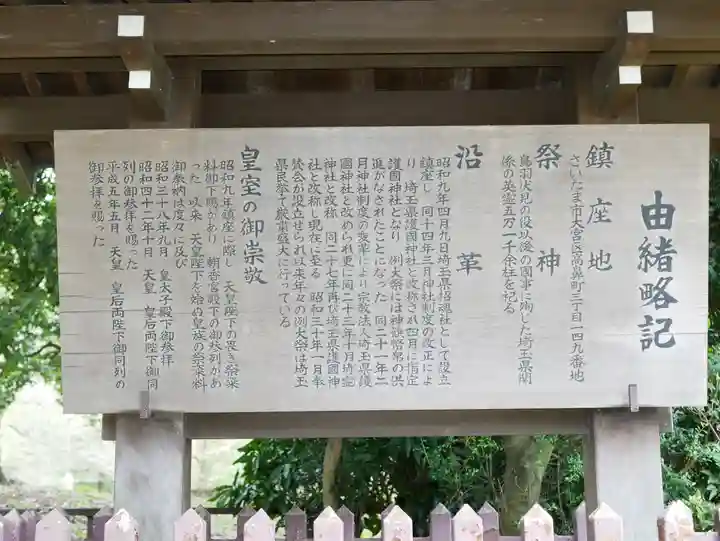 由緒略記
鎮座地
さいたま市大宮区高鼻町三丁目一四九番地
祭神
鳥羽伏見の役以後の國事に殉した埼玉県関
係の英霊五万一千余柱を祀る
沿革
昭和九年四月九日埼玉県招魂社として設立
鎮座し 同十四年三月神社制度の改正によ
り 埼玉県護國神社と改称され四月に指定
護國神社となり 例大祭には神饌幣帛の供
進がなされたことになった 同二十一年二
月神社制度の変革により宗教法人埼玉県護
國神社と改められ更に同二十三年十月埼霊
神社と改称 同二十七年再び埼玉県護國神
社と改称し現在に至る 昭和三十年一月奉
賛会が設立せられ以来年々の例大祭は埼玉
県民祭て厳粛盛大に行っている
皇室の御崇敬
昭和九年鎮座に際し 天皇陛下の畏き祭粢
料御下賜があり 朝香宮殿下の御参列があ
った 以来 天皇陛下を始め皇族の祭粢料
御奉納は度々に及び
昭和三十八年九月 皇太子殿下御参拝
昭和四十二年十月 天皇 皇后両陛下御同
列の御参拝を賜った
平成五年五月 天皇 皇后両陛下御同列の
御参拝を賜った